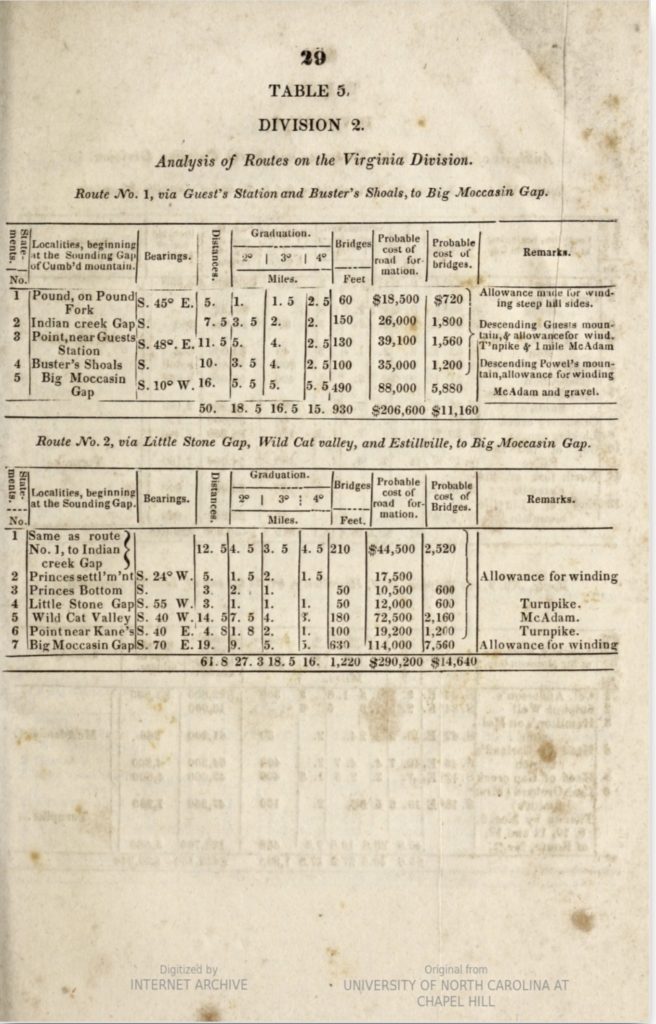 29
TABLE 5.
DIVISION 2.
Analysis of Routes on the Virginia Division.
Route No. 1, via Guest's Station and Buster's Shoals, to Big Moccasin Gap.
State-ments. No. | Localities, beginning at the Sounding Gap of Cumb'd mountain. | Bearings. | Distances. | Graduation. 2° | 3° | 4° Miles. | Bridges Feet | Probable cost of road for-mation. | Probable cost of bridges. | Remarks.
1 Pound, on Pound Fork S. 45° E. 5. 1. 1. 5 2. 5 60 $18,500 $720 Allowance made for wind-ing steep hill sides.
2 Indian creek Gap S. 7. 5 3. 5 2. 2. 150 26,000 1,800 Descending Guests moun-
3 Point, near Guests Station S. 48°. E. 11. 5 5. 4. 2. 5 130 39,100 1,560 tain, & allowance for wind. T'npike & 1 mile McAdam
4 Buster's Shoals S. 10. 3. 5 4. 2. 5 100 35,000 1,200 Descending Powel's moun-tain, allowance for winding
5 Big Moccasin Gap S. 10° W. 16. 5. 5 5. 5. 5 490 88,000 5,880 McAdam and gravel.
50. 18. 5 16. 5 15. 930 $206,600 $11,160
Route No. 2, via Little Stone Gap, Wild Cat valley, and Estillville, to Big Moccasin Gap.
State-ments. No. | Localities, beginning at the Sounding Gap. | Bearings. | Distances. | Graduation. 2° | 3° | 4° Miles. | Bridges Feet. | Probable cost of road for-mation. | Probable cost of Bridges. | Remarks.
1 Same as route No. 1, to Indian creek Gap 12. 5 4. 5 3. 5 4. 5 210 $44,500 2,520
2 Princes settl'm'nt S. 24° W. 5. 1. 5 2. 1. 5 17,500 Allowance for winding
3 Princes Bottom S. 3 2. 1. 50 10,500 600
4 Little Stone Gap S. 55 W. 3. 1. 1. 1. 50 12,000 600 Turnpike.
5 Wild Cat Valley S. 40 W. 14. 5 7. 5 4. 3. 180 72,500 2,160 McAdam.
6 Point near Kane's S. 40 E. 4. 8 1. 8 2. 1. 100 19,200 1,200 Turnpike.
7 Big Moccasin Gap S. 70 E. 19. 9. 5. 5. 630 114,000 7,560 Allowance for winding
61. 8 27. 3 18. 5 16. 1,220 $290,200 $14,640
Digitized by
INTERNET ARCHIVE
Original from
UNIVERSITY OF NORTH CAROLINA AT
CHAPEL HILL